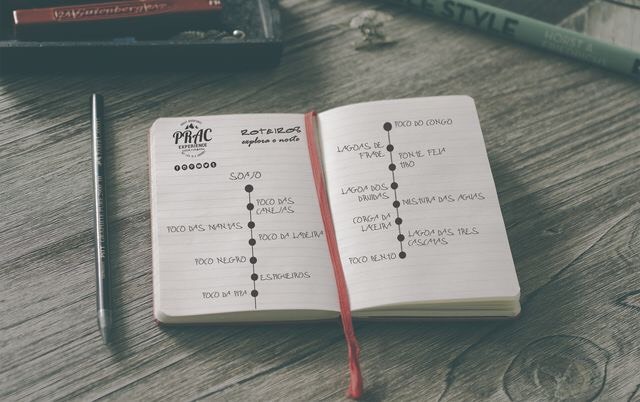 Gutenberg
STYLE STYLE
PRAC
EXPERIENCE
ROTEIROS
explora o norte
SOAJO
POCO DAS
CANEJAS
POCO DAS MANTAS
POCO DA LADEIRA
POCO NEGRO
ESPIGUEIROS
POCO DA PIPA
POCO DO CONGO
LAGOAS DE
FRADE
PONTE FEIA
TIBO
LAGOA DOS
DRUIDAS
MISTURA DAS AGUAS
CORGA DA
LACEIRA
LAGOA DAS TRES
CASCATAS
POCO BENTO